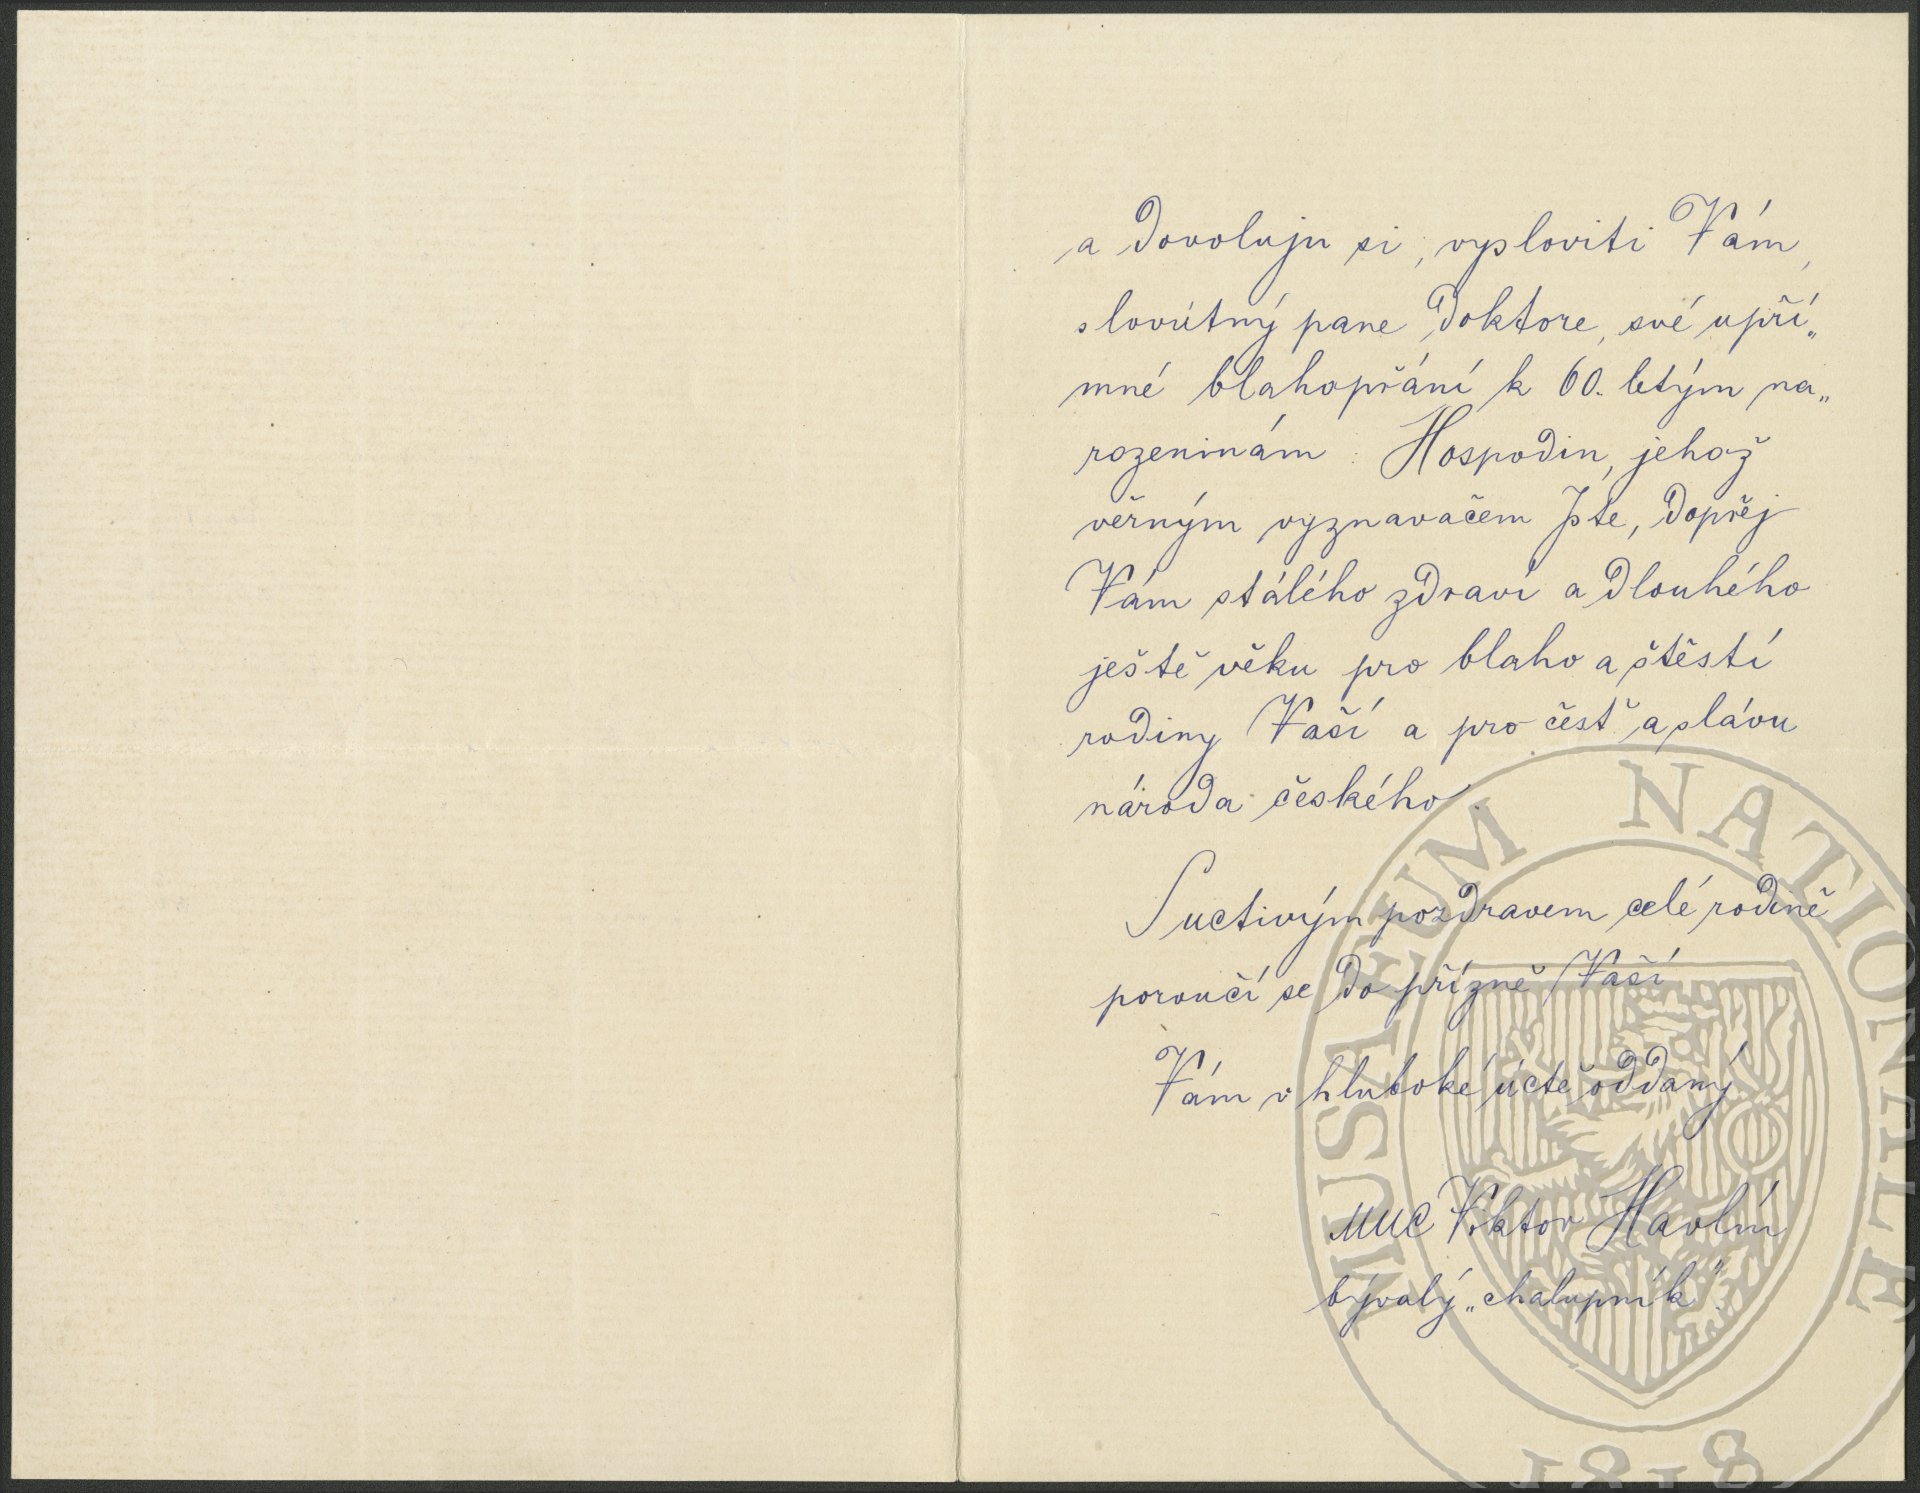 a dovoluju si, vysloviti Vám,
slovútný pane Doktore, své upří„
mné blahopřání k 60. letým na„
rozeninám. Hospodin, jehož
věrným vyznavačem Jste, dopřej
Vám stálého zdraví a dlouhého
ještě věku pro blaho a štěstí
rodiny Vaší a pro čest a slávu
národa českého.
S uctivým pozdravem celé rodině
poroučí se do přízně Vaší
Vám v hluboké úctě oddaný
MUC Viktor Havlín
bývalý „chalupník".
MUSAEUM NATIONALE
1818